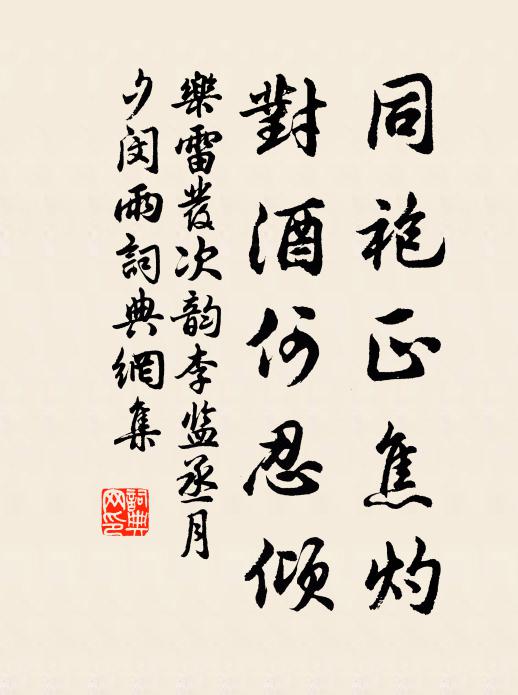 同袍正焦灼
對酒何忍傾
樂雷發次韵李监丞月
夕閔雨詞典網集
詞典网印